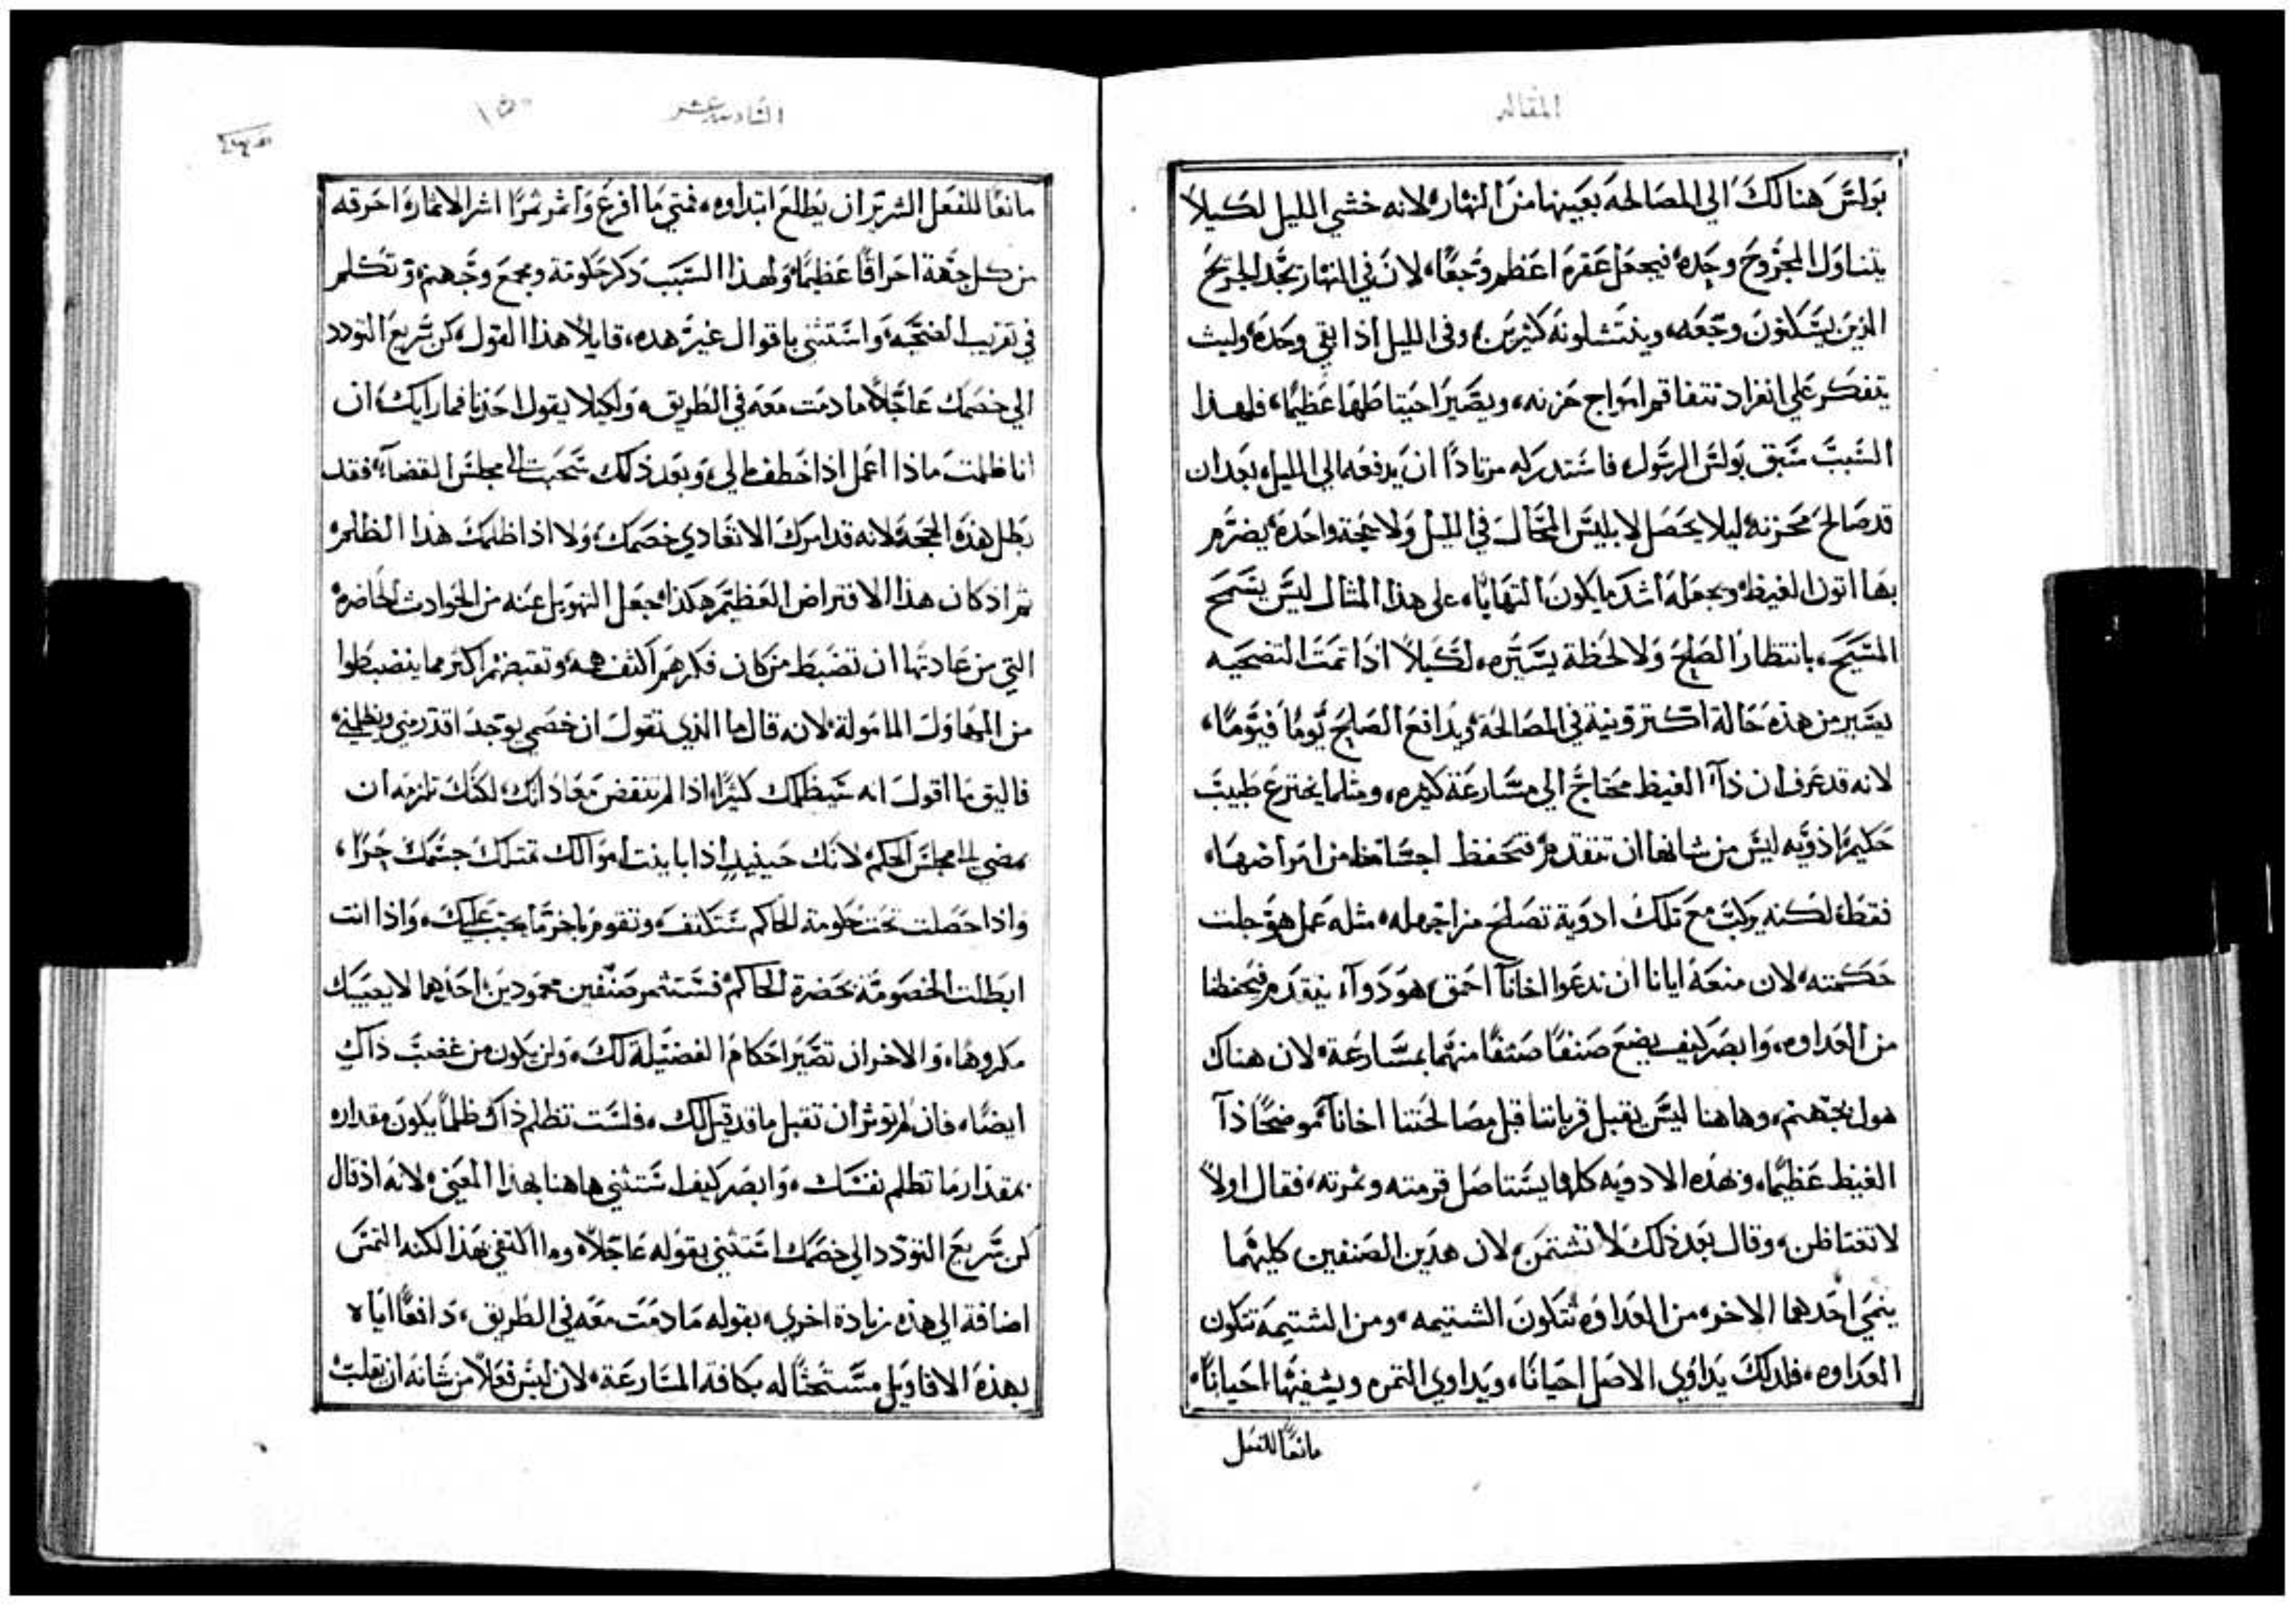 المقاله
بولس هنالك الي المصالحة بعينها من النهار لانه خشي الليل لكيلا
يتناول المجروح وحده فيجعل عقره اعظم وجعًا، لان في النهار تجد الجريح
الذين يسكنون وجعه، وينتشلونه كثيرين، وفي الليل اذا بقي وحده ولبث
يتفكر علي انفراد تتفاقم امواج حزنه، ويصير احتياطها عظيمًا، فلهذا
السبب سبق بولس الرسول فاستدركه مرتادًا ان يدفعه الي الليل بعد ان
قد صالح محزنه ليلا يحصل لابليس المحال في الليل ولا حجة واحدة يضرم
بها اتون الغيظ ويجعله اشد ما يكون التهابًا، على هذا المثال ليس يسمح
المسيح، بانتظار الصلح ولا لحظة يسيره، لكيلا اذا تمت التضحيه
يصير من هذه حاله اكتر ونية في المصالحة ويدافع الصلح يومًا فيومًا،
لانه قد عرف ان ذآ الغيظ محتاج الي مسارعة كثيره، ومثلما يخترع طبيب
حكيم اذويه ليس من شانها ان تتقدم فتحفظ اجسامنا من امراضها،
فقط، لكنه يركب مع تلك ادوية تصلح من اجمله، مثله عمل هو جلت
حكمته، لان منعه ايانا ان ندعوا اخانآ احمق، هو دوآء يتقدم فيحفظنا
من العداوه، وابصر كيف يضع صنفًا صنفًا منهما بمسارعة، لان هناك
هول بجهنم، وهاهنا ليس يقبل قرباننا قبل مصالحتنا اخانآ موضحًا ذآ
الغيظ عظيمًا، وبهذه الادويه كلها يستاصل قرمته وثمرته، فقال اولاً
لا تغتاظن، وقال بعد ذلك لا تشتمن، لان هدين الصنفين كليهما
ينمي احدهما الاخر، من العداوه تتكون الشتيمه، ومن الشتيمة تتكون
العداوه، فلدلك يداوي الاصل احيانًا، ويداوي الثمره ويشفيها احيانًا،
مانعًا للفعل
السادسه عشر
١٥٠
مانعًا للفعل الشرير ان يطلع ابتداوه، فمتي ما افرع واثمر ثمرًا اشر الاثماره احرقه
من كل جهة احراقًا عظيمًا، ولهذا السبب ذكر حكومة ومجمع وجهنم، وتكلم
في تقريب الضحيه، واستثني باقوال غير هده، قايلاً هذا القول، كن سريع التودد
الي خصمك عاجلاً ما دمت معه في الطريق، ولكيلا يقول احدنا فما رايك، ان
انا ظلمت ماذا اعمل اذا خطف مالي، وبعد ذلك سحبت الى مجلس القضآ، فقد
بطل هذه الحجة لانه قد امرك الا تعادي خصمك ولا اذا ظلمك هذا الظلم،
ثم اذ كان هذا الافتراض العظيم هكذا، جعل التهويل عنه من الحوادث الحاضره
التي من عادتها ان تضبط من كان فكرهم اكثف همه، وتقبضهم اكثر مما ينضبطوا
من المهاول المامولة، لانه قال ما الذي تقول ان خصمي يوجد اقدر مني ويظلمني،
فاليق ما اقول انه سيظلمك كثيرًا، اذا لم تنقض معاداتك، لكنك تلزمه ان
يمضي الى مجلس الحكم، لانك حينيذٍ اذا باينت اموالك تمتلك جسمك حرًا،
واذا حصلت تحت حكومة الحاكم ستكتف، وتقوم باخر ما يجب عليك، واذا انت
ابطلت الخصومة بحضرة الحاكم، فستثمر صنفين محمودين، احدهما لا يصيبك
مكروها، والاخر ان تصير احكام الفضيلة لك، ولن يكون من غضب ذاك
ايضًا، فان لم توثر ان تقبل ما قد قيل لك، فلست تظلم ذاك ظلمًا يكون مقداره
بمقدار ما تظلم نفسك، وابصر كيف استثني هاهنا بهذا المعني، لانه اذ قال
كن سريع التودد الي خصمك استثني بقوله عاجلاً، وما اكتفي بهذا لكنه التمس
اضافة الي هذه زيادة اخري، بقوله ما دمت معه في الطريق، دافعًا اياه
بهذه الاقاويل مستحثًا له بكافة المسارعة، لان ليس فعلاً من شانه ان يقلب